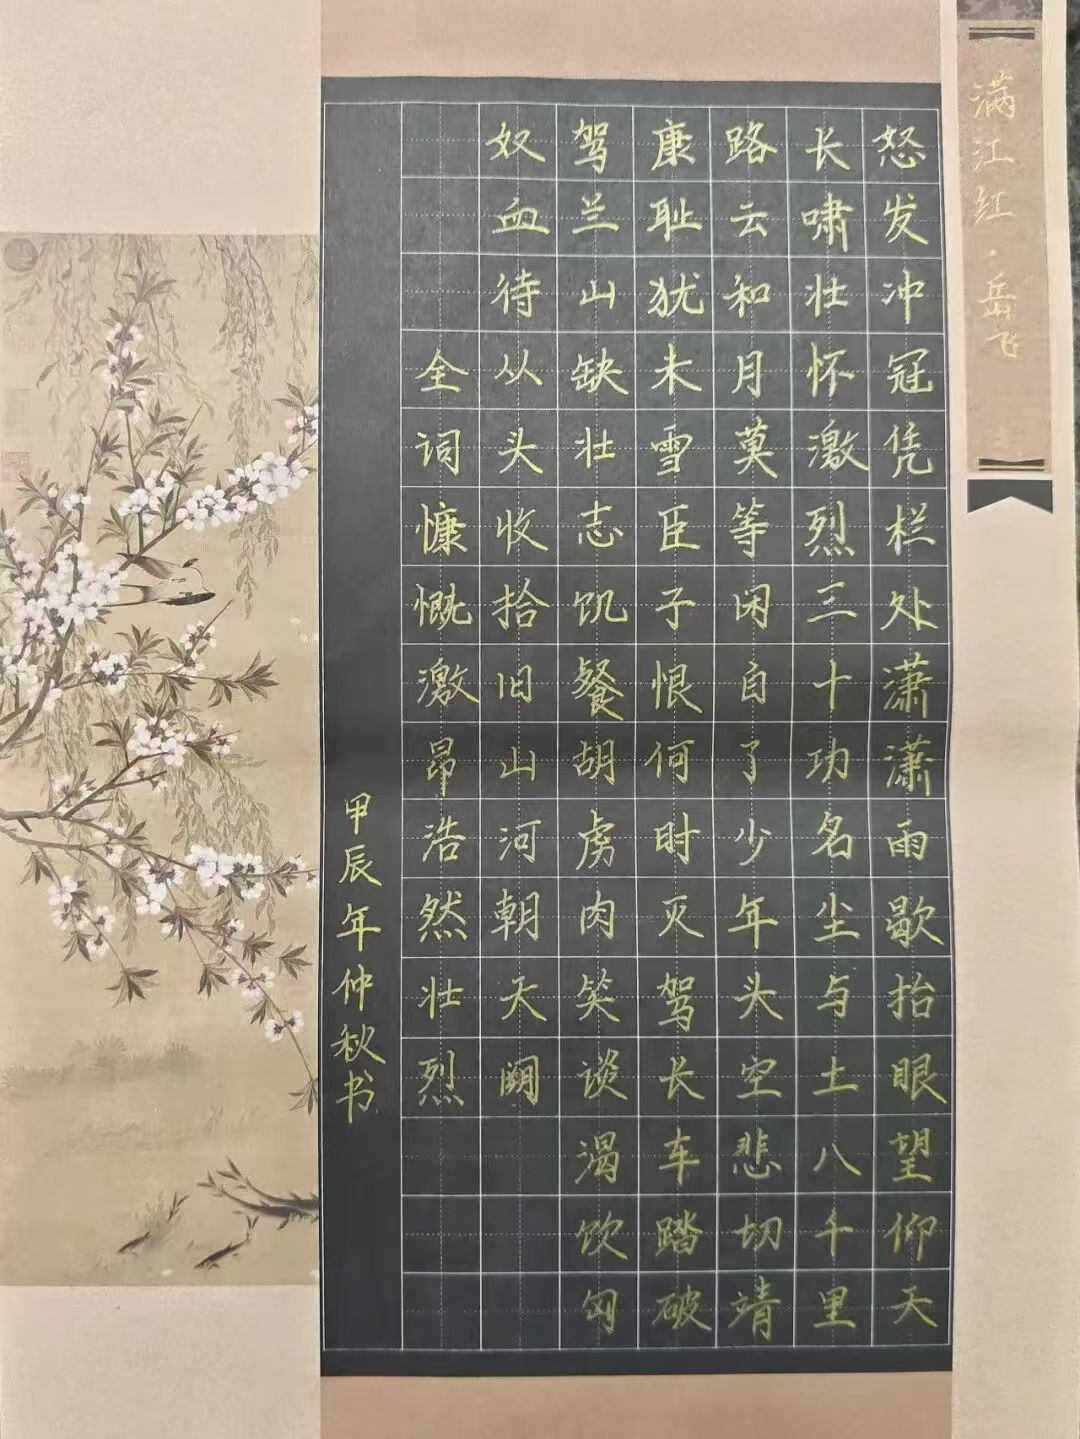 满江红·岳飞
怒发冲冠凭栏处潇潇雨歇抬眼望仰天
长啸壮怀激烈三十功名尘与土八千里
路云和月莫等闲自了少年头空悲切靖
康耻犹未雪臣子恨何时灭驾长车踏破
驾兰山缺壮志饥餐胡虏肉笑谈渴饮匈
奴血待从头收拾旧山河朝天阙
全词慷慨激昂浩然壮烈
甲辰年仲秋书